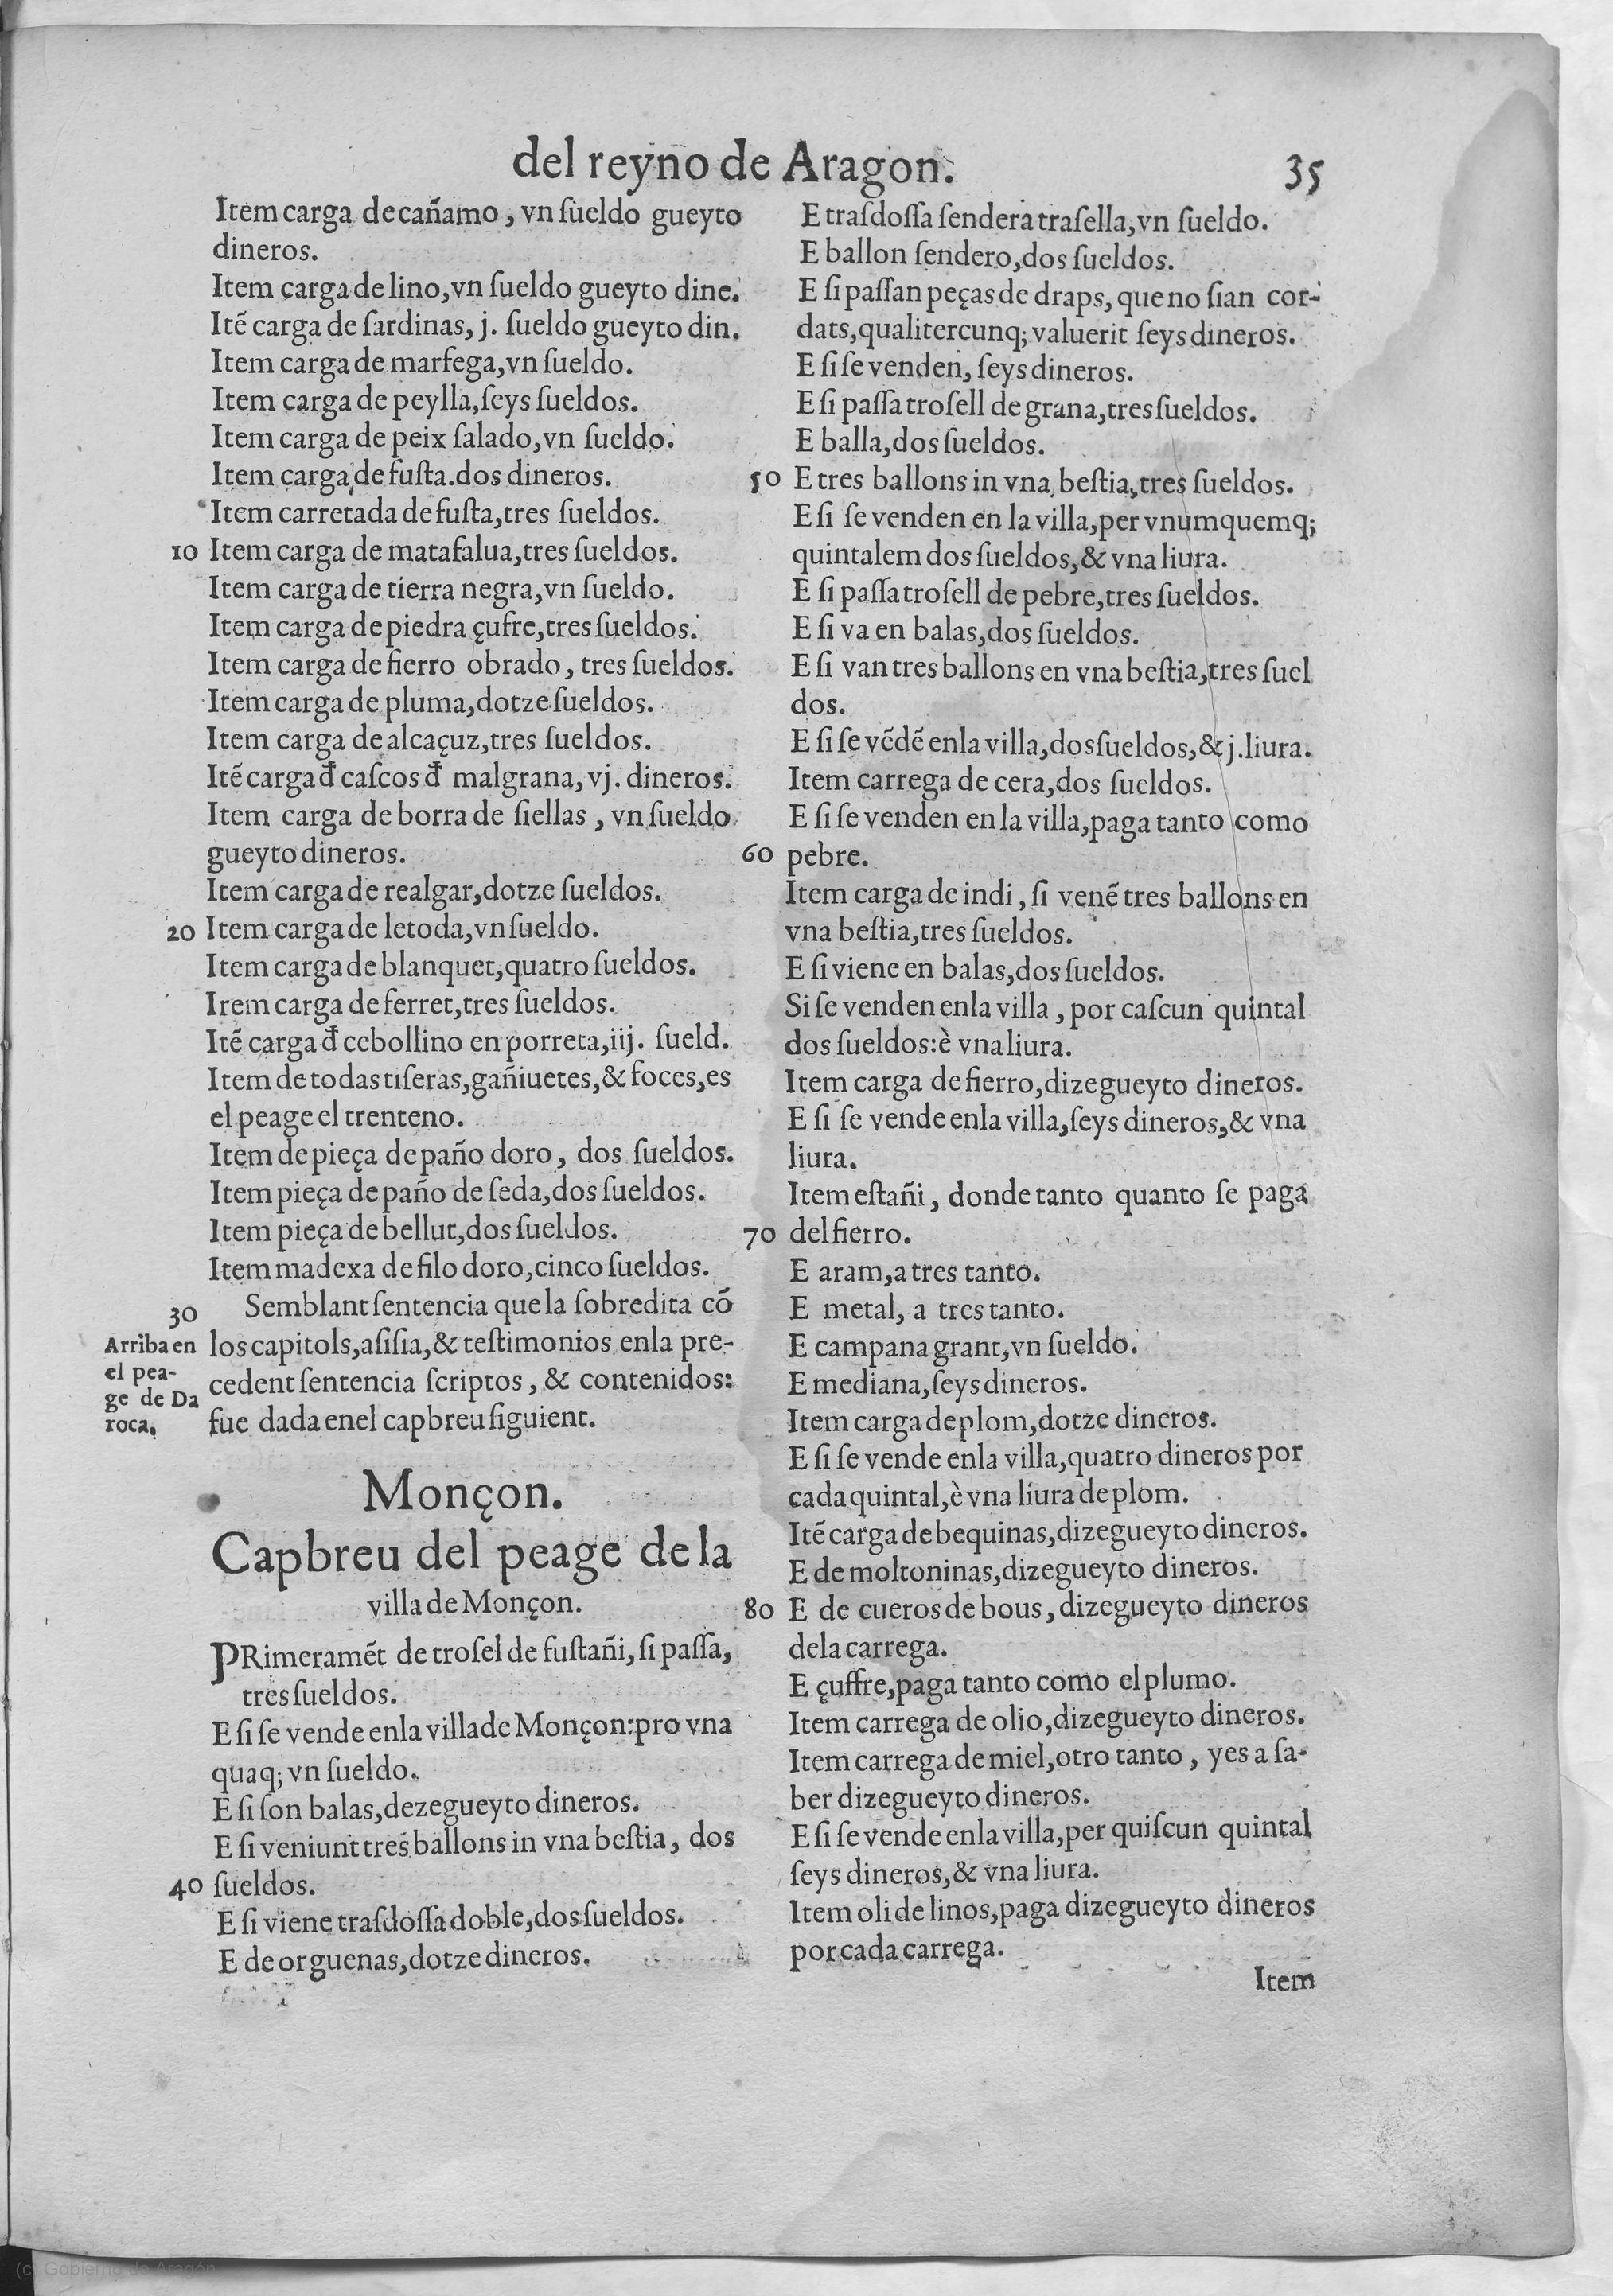 del reyno de Aragon.
35
Item carga de cañamo, vn ſueldo gueyto
dineros.
Item carga de lino, vn ſueldo gueyto dine.
Itẽ carga de ſardinas, j. ſueldo gueyto din.
Item carga de marfega, vn ſueldo.
Item carga de peylla, ſeys ſueldos.
Item carga de peix ſalado, vn ſueldo.
Item carga de fuſta. dos dineros.
Item carretada de fuſta, tres ſueldos.
10 Item carga de matafalua, tres ſueldos.
Item carga de tierra negra, vn ſueldo.
Item carga de piedra çufre, tres ſueldos.
Item carga de fierro obrado, tres ſueldos.
Item carga de pluma, dotze ſueldos.
Item carga de alcaçuz, tres ſueldos.
Itẽ carga đ caſcos đ malgrana, vj. dineros.
Item carga de borra de ſiellas, vn ſueldo
gueyto dineros.
Item carga de realgar, dotze ſueldos.
20 Item carga de letoda, vn ſueldo.
Item carga de blanquet, quatro ſueldos.
Irem carga de ferret, tres ſueldos.
Itẽ carga đ cebollino en porreta, iij. ſueld.
Item de todas tiſeras, gañiuetes, & foces, es
el peage el trenteno.
Item de pieça de paño doro, dos ſueldos.
Item pieça de paño de ſeda, dos ſueldos.
Item pieça de bellut, dos ſueldos.
Item madexa de filo doro, cinco ſueldos.
30 Semblant ſentencia que la ſobredita cõ
los capitols, aſiſia, & teſtimonios enla pre-
cedent ſentencia ſcriptos, & contenidos:
fue dada enel capbreu ſiguient.
Arriba en
el pea-
ge de Da
roca.
Monçon.
Capbreu del peage de la
villa de Monçon.
PRimeramẽt de troſel de fuſtañi, ſi paſſa,
tres ſueldos.
E ſi ſe vende enla villa de Monçon: pro vna
quaq; vn ſueldo.
E ſi ſon balas, dezegueyto dineros.
E ſi veniunt tres ballons in vna beſtia, dos
40 ſueldos.
E ſi viene traſdoſſa doble, dos ſueldos.
E de orguenas, dotze dineros.
E traſdoſſa ſendera traſella, vn ſueldo.
E ballon ſendero, dos ſueldos.
E ſi paſſan peças de draps, que no ſian cor-
dats, qualitercunq; valuerit ſeys dineros.
E ſi ſe venden, ſeys dineros.
E ſi paſſa troſell de grana, tres ſueldos.
E balla, dos ſueldos.
50 E tres ballons in vna beſtia, tres ſueldos.
E ſi ſe venden en la villa, per vnumquemq;
quintalem dos ſueldos, & vna liura.
E ſi paſſa troſell de pebre, tres ſueldos.
E ſi va en balas, dos ſueldos.
E ſi van tres ballons en vna beſtia, tres ſuel
dos.
E ſi ſe vẽdẽ enla villa, dos ſueldos, & j. liura.
Item carrega de cera, dos ſueldos.
E ſi ſe venden en la villa, paga tanto como
60 pebre.
Item carga de indi, ſi venẽ tres ballons en
vna beſtia, tres ſueldos.
E ſi viene en balas, dos ſueldos.
Si ſe venden enla villa, por caſcun quintal
dos ſueldos: è vna liura.
Item carga de fierro, dizegueyto dineros.
E ſi ſe vende enla villa, ſeys dineros, & vna
liura.
Item eſtañi, donde tanto quanto ſe paga
70 del fierro.
E aram, a tres tanto.
E metal, a tres tanto.
E campana grant, vn ſueldo.
E mediana, ſeys dineros.
Item carga de plom, dotze dineros.
E ſi ſe vende enla villa, quatro dineros por
cada quintal, è vna liura de plom.
Itẽ carga de bequinas, dizegueyto dineros.
E de moltoninas, dizegueyto dineros.
80 E de cueros de bous, dizegueyto dineros
dela carrega.
E çuffre, paga tanto como el plumo.
Item carrega de olio, dizegueyto dineros.
Item carrega de miel, otro tanto, yes a ſa-
ber dizegueyto dineros.
E ſi ſe vende enla villa, per quiſcun quintal
ſeys dineros, & vna liura.
Item oli de linos, paga dizegueyto dineros
por cada carrega.
Item
(c) Gobierno de Aragón